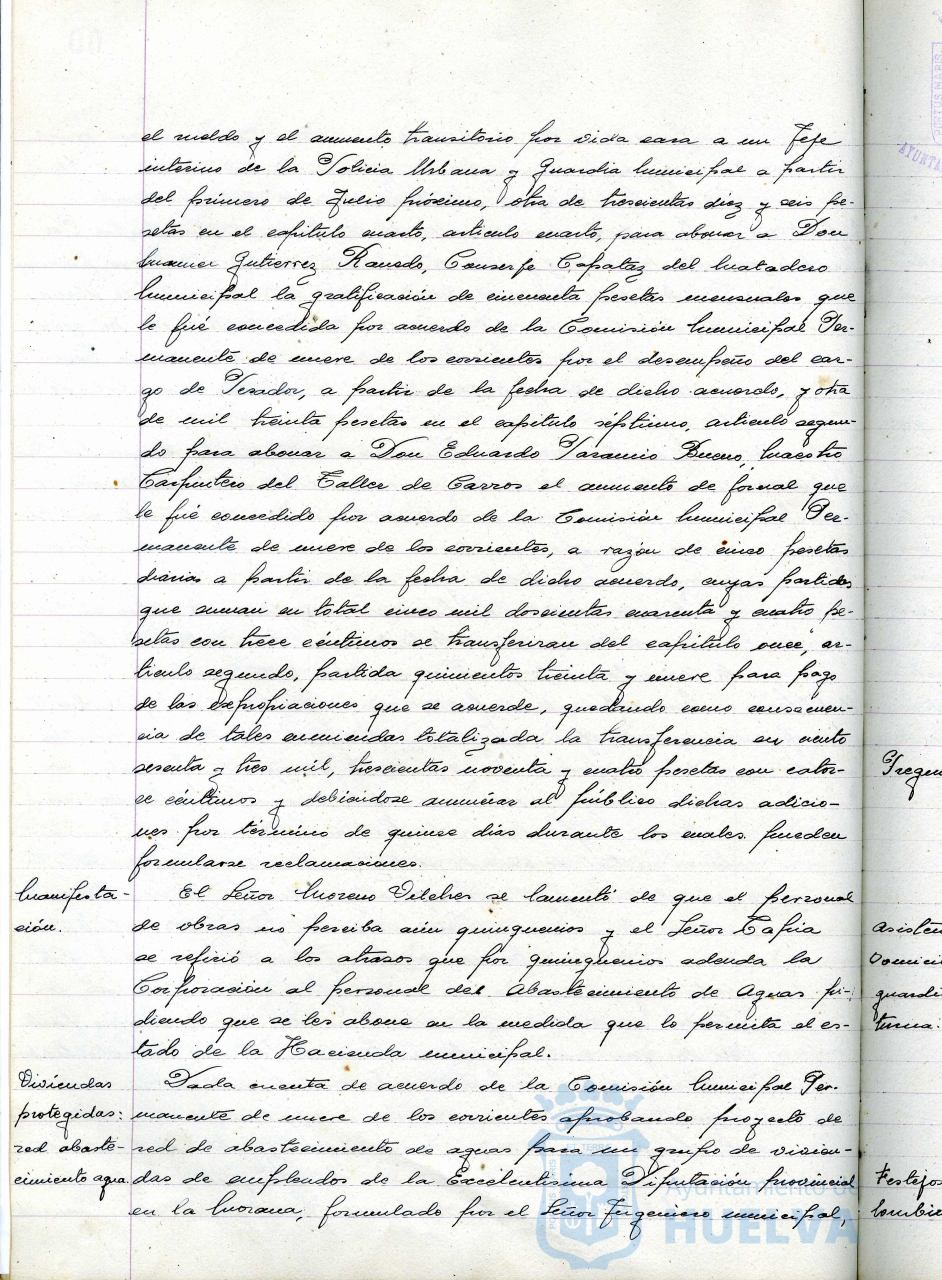 el sueldo y el aumento transitorio por vida cara a un Jefe
interino de la Policia Urbana y Guardia Municipal a partir
del primero de Julio próximo, otra de trescientas diez y seis pe-
setas en el capitulo cuarto, articulo cuarto, para abonar a Don
Manuel Gutierrez Ranedo, Conserje Capataz del Matadero
Municipal la gratificación de cincuenta pesetas mensuales que
le fué concedida por acuerdo de la Comisión Municipal Per-
manente de nueve de los corrientes por el desempeño del car-
go de Pesador, a partir de la fecha de dicho acuerdo, y otra
de mil treinta pesetas en el capitulo séptimo, articulo segun-
do para abonar a Don Eduardo Bueno, Maestro
Carpintero del Taller de Carros el aumento de jornal que
le fué concedido por acuerdo de la Comisión Municipal Per-
manente de nueve de los corrientes, a razón de cinco pesetas
diarias a partir de la fecha de dicho acuerdo, cuyas partidas
que suman en total cinco mil doscientas cuarenta y cuatro pe-
setas con trece céntimos se transferiran del capitulo once, ar-
ticulo segundo, partida quinientos treinta y nueve para pago
de las expropiaciones que se acuerde, quedando como consecuen-
cia de tales enmiendas totalizada la transferencia en ciento
sesenta y tres mil, trescientas noventa y cuatro pesetas con cator-
ce céntimos y debiéndose anunciar al público dichas adicio-
nes por término de quince días durante los cuales pueden
formularse reclamaciones.
Manifesta-
ción.
El Señor Moreno Vilches se lamentó de que el personal
de obras no perciba aún quinquenios y el Señor Tapia
se refirió a los atrasos que por quinquenios adeuda la
Corporación al personal del Abastecimiento de Aguas pi-
diendo que se les abone en la medida que lo permita el es-
tado de la Hacienda municipal.
Viviendas
protegidas:
red abaste-
cimiento agua.
Dada cuenta de acuerdo de la Comisión Municipal Per-
manente de nueve de los corrientes aprobando proyecto de
red de abastecimiento de aguas para un grupo de vivien-
das de empleados de la Excelentisima Diputación provincial
en la Morana, formulado por el Señor Ingeniero municipal,
Ayuntamiento de
HUELVA